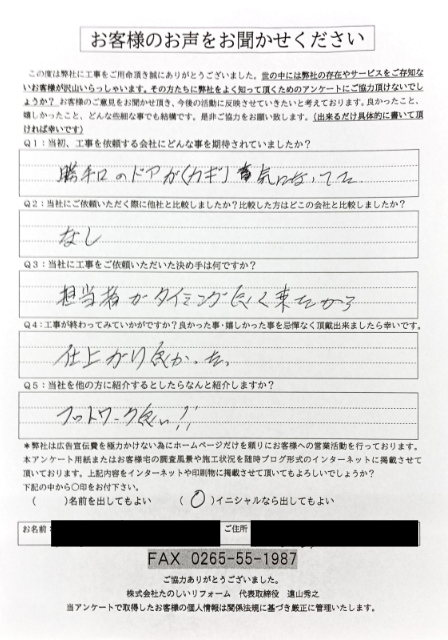 お客様のお声をお聞かせください
この度は弊社に工事をご用命頂き誠にありがとうございました。世の中には弊社の存在やサービスをご存知な
いお客様が沢山いらっしゃいます。その方たちに弊社をよく知って頂くためのアンケートにご協力頂けないでし
ょうか？ お客様のご意見をお聞かせ頂き、今後の活動に反映させていきたいと考えております。良かったこと、
嬉しかったこと、どんな些細な事でも結構です。是非ご協力をお願い致します。(出来るだけ具体的に書いて頂
ければ幸いです)
Q１：当初、工事を依頼する会社にどんな事を期待されていましたか？
勝手口のドアが(カギ)
Q２：当社にご依頼いただく際に他社と比較しましたか？比較した方はどこの会社と比較しましたか？
なし
Q３：当社に工事をご依頼いただいた決め手は何ですか？
担当者がタイミング良く来たから
Q４：工事が終わってみていかがですか？良かった事・嬉しかった事を忌憚なく頂戴出来ましたら幸いです。
仕上がり良かった。
Q５：当社を他の方に紹介するとしたらなんと紹介しますか？
フットワーク良い!!
＊弊社は広告宣伝費を極力かけない為にホームページだけを頼りにお客様への営業活動を行っております。
本アンケート用紙またはお客様宅の調査風景や施工状況を随時ブログ形式のインターネットに掲載させて
頂いております。上記内容をインターネットや印刷物に掲載させて頂いてもよろしいでしょうか？
下記の中から〇印をお付下さい。
(　　)名前を出してもよい　(〇)イニシャルなら出してもよい
お名前：　ご住所
FAX 0265-55-1987
ご協力ありがとうございました。
株式会社たのしいリフォーム　代表取締役　遠山秀之
当アンケートで取得したお客様の個人情報は関係法規に基づき厳正に管理いたします。